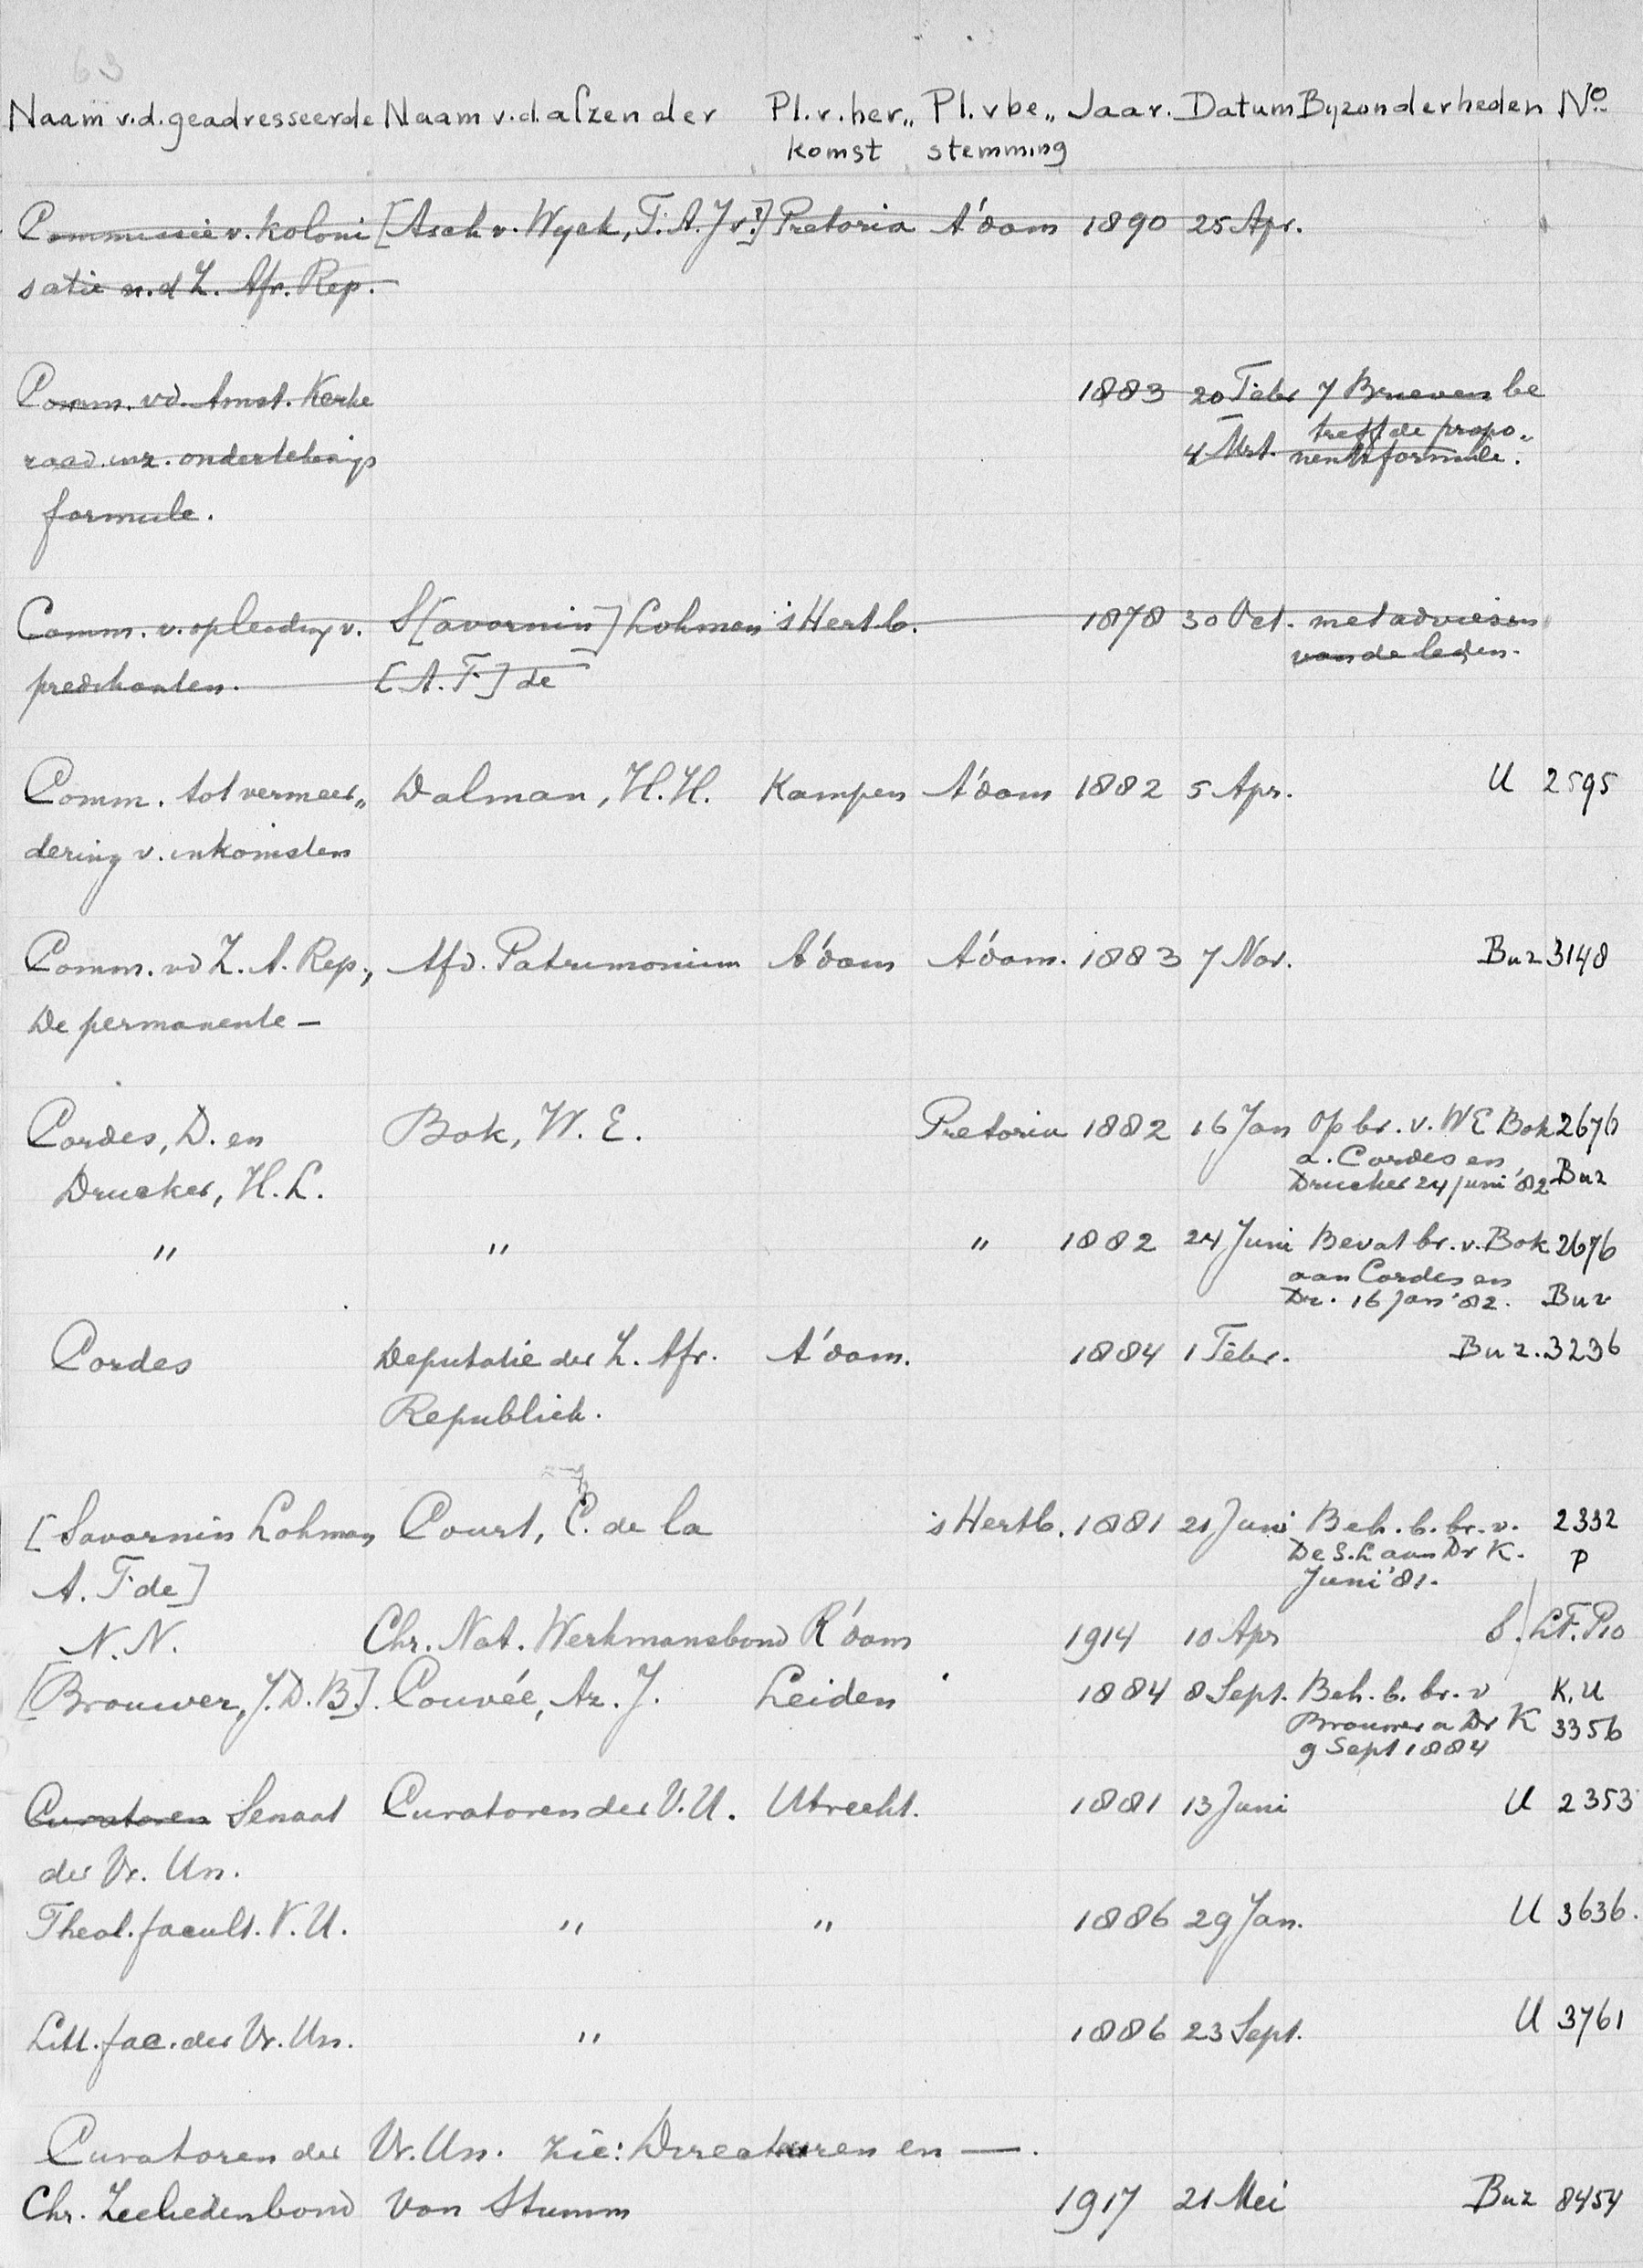 63
Naam v.d. geadresseerde Naam v.d. afzender Pl. v. her„ Pl. v be„ Jaar. Datum Byzonderheden No
komst stemming
Commissie v. koloni [Asch v. Wyck, T. A. J v.] Pretoria A'dam 1890 25 Apr.
satie n. d Z. Afr. Rep.
Comm. vd. Amst. Kerke 1883 20 Febr 7 Brieven be
raad inz. ondertekenings 4 Mrt. treff de propo„
formule. nentsformule.
Comm. v. opleiding v. S[avornin] Lohman 's Hertb. 1878 30 Oct. met adviezen
predikanten. [A. F.] de van de leden.
Comm. tot vermeer„ Dalman, H. H. Kampen A'dam 1882 5 Apr. U 2595
dering v. inkomsten
Comm. vd Z. A. Rep., Afd. Patrimonium A'dam A'dam. 1883 7 Nov. Buz 3148
De permanente —
Cordes, D. en Bok, W. E. Pretoria 1882 16 Jan Op br. v. W E Bok 2676
Drucker, H. L. a. Cordes en
Drucker 24 juni '82 Buz
" " " 1882 24 Juni Bevat br. v. Bok 2676
aan Cordes en
Dr. 16 jan '82. Buz
Cordes Deputatie der Z. Afr. A'dam. 1884 1 Febr. Buz. 3236
Republiek.
[Savornin Lohman Court, C. de la 's Hertb. 1881 21 Juni Beh. b. br. v. 2332
A. F. de] De S. L aan Dr K. P
Juni '81.
N. N. Chr. Nat. Werkmansbond R'dam 1914 10 Apr S. / LF. P10
[Brouwer, J. D. B]. Couvée, Az. J. Leiden 1884 8 Sept. Beh. b. br. v K. U
Brouwer a Dr K 3356
9 Sept 1884
Curatoren Senaat Curatoren der V. U. Utrecht. 1881 13 Juni U 2353
der Vr. Un.
Theol. facult. V. U. " " 1886 29 Jan. U 3636.
Litt. fac. der Vr. Un. " 1886 23 Sept. U 3761
Curatoren der Vr. Un. Zie: Directeuren en —.
Chr. Zeeliedenbond Von Stumm 1917 21 Mei Buz 8454